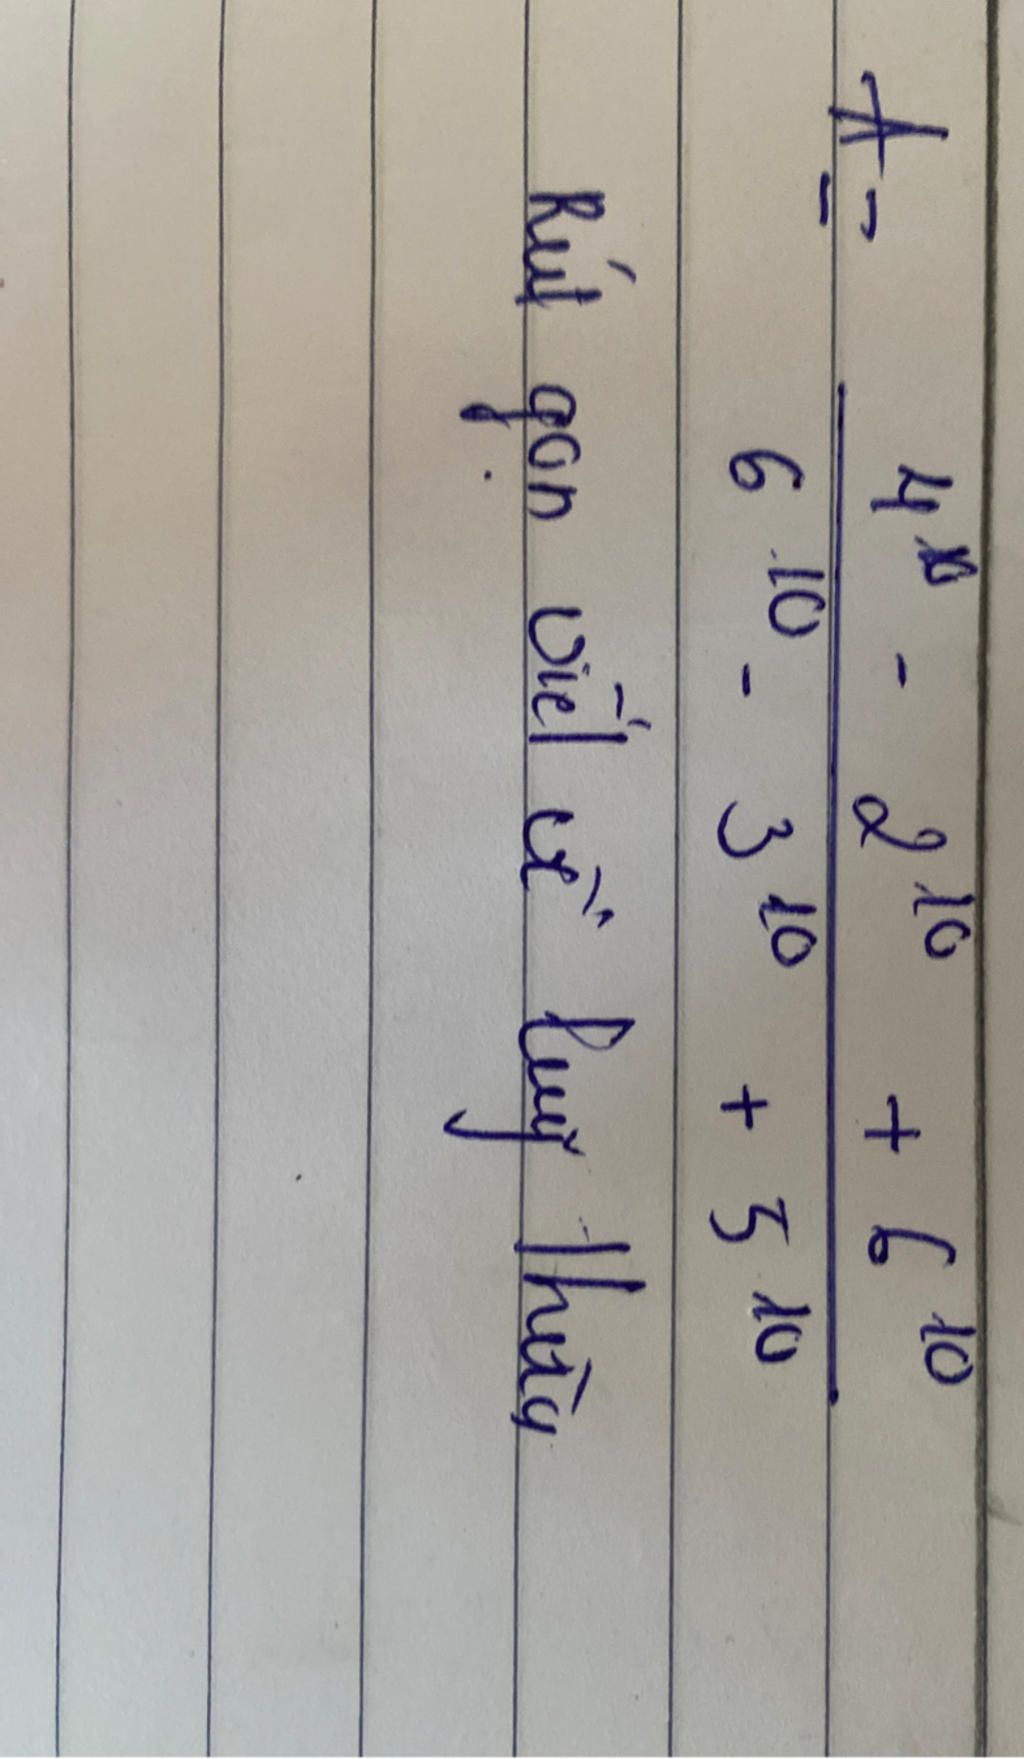 A = 4¹⁰ - 2¹⁰ + 6¹⁰
6¹⁰ - 3¹⁰ + 5¹⁰
Rút gọn viết về luỹ thừa